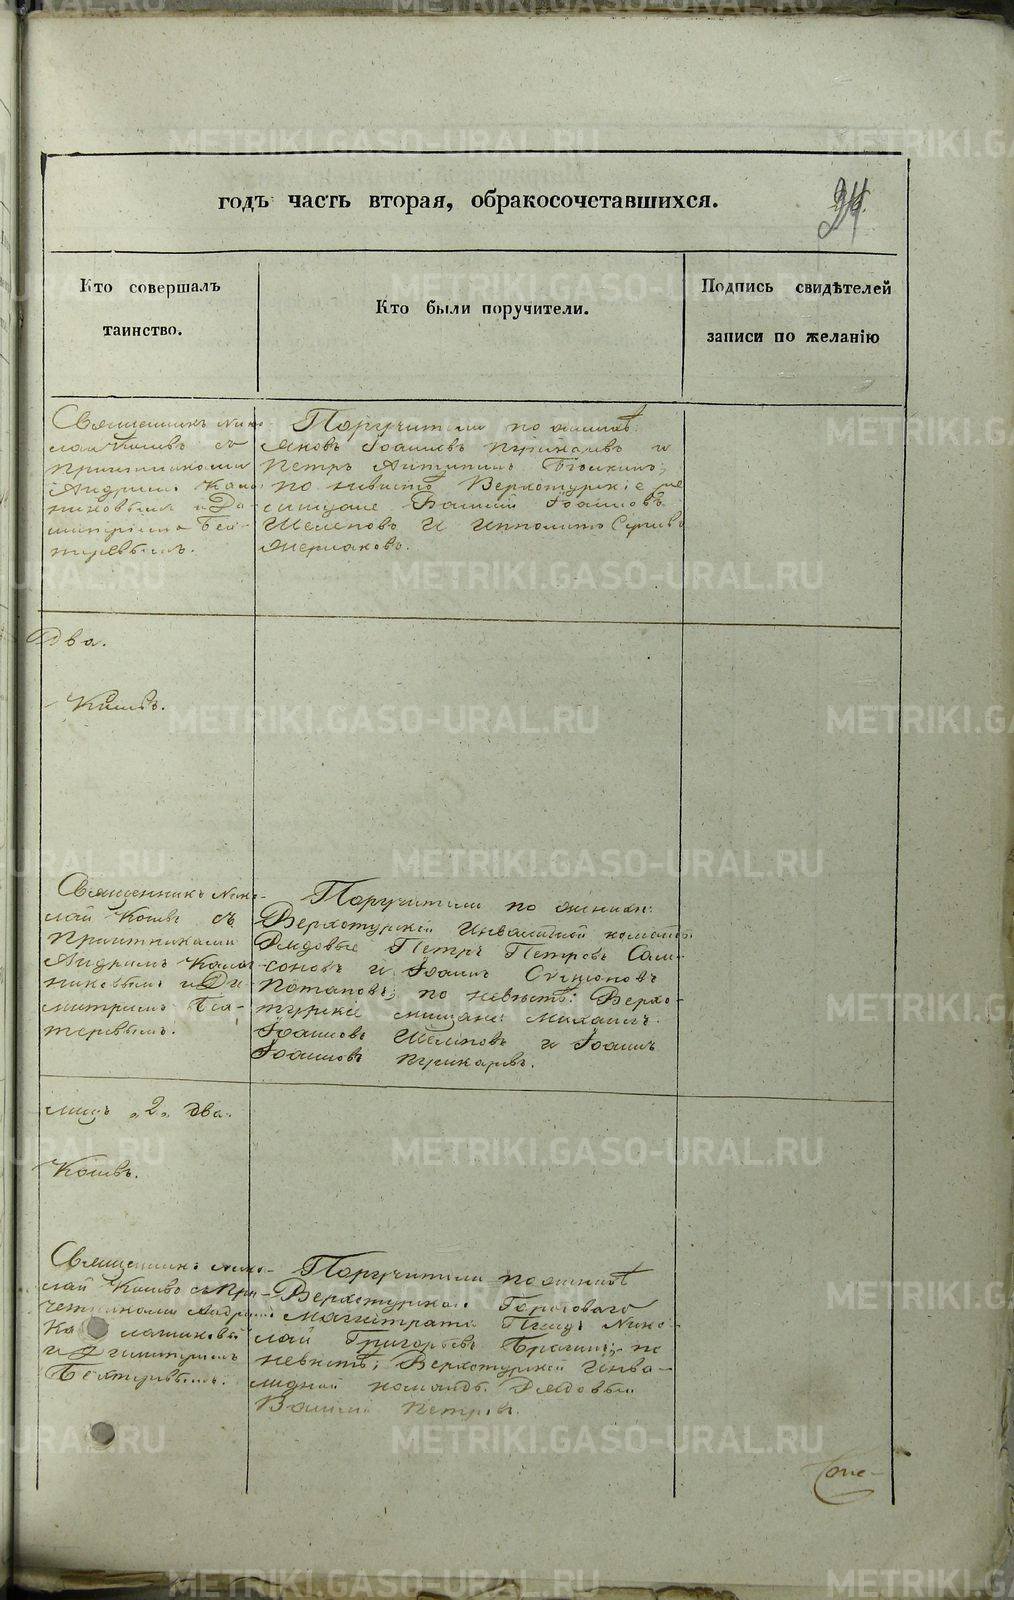 годъ часть вторая, обракосочетавшихся.
24
Кто совершалъ
таинство.
Кто были поручители.
Подпись свидѣтелей
записи по желанію
Священникъ Нико-
лай Коневъ съ
причетниками
Андреемъ
и Ди-
митріемъ Бех-
теревымъ.
Поручители по женихѣ:
Яковъ Іоанновъ Пушкаревъ и
Петръ
по невѣстѣ Верхотурскіе ме-
щане Іоанновъ
Шелеповъ и Ипполитъ
Два.
Коневъ.
Священникъ Нико-
лай Коневъ съ
причетниками
Андреемъ Калаш-
никовымъ и Ди-
митріемъ Бех-
теревымъ.
Поручители по женихѣ:
Верхотурской Инвалидной команды
Рядовые Петръ Петровъ Сам-
соновъ и Іоаннъ
Потаповъ; по невѣстѣ: Верхо-
турскіе мещане: Михаилъ
Іоанновъ Шелеповъ и Іоаннъ
Іоанновъ Пушкаревъ.
лицъ „2„ два.
Коневъ.
Священникъ Нико-
лай Коневъ съ при-
четниками Андреемъ
и Димитріемъ
Бехтеревымъ.
Поручители по женихѣ
Верхотурскаго Городоваго
Магистрата Нико-
лай Григорьевъ по
невѣстѣ; Верхотурской Инва-
лидной команды Рядовый
Василій Петровъ.
METRIKI.GASO-URAL.RU